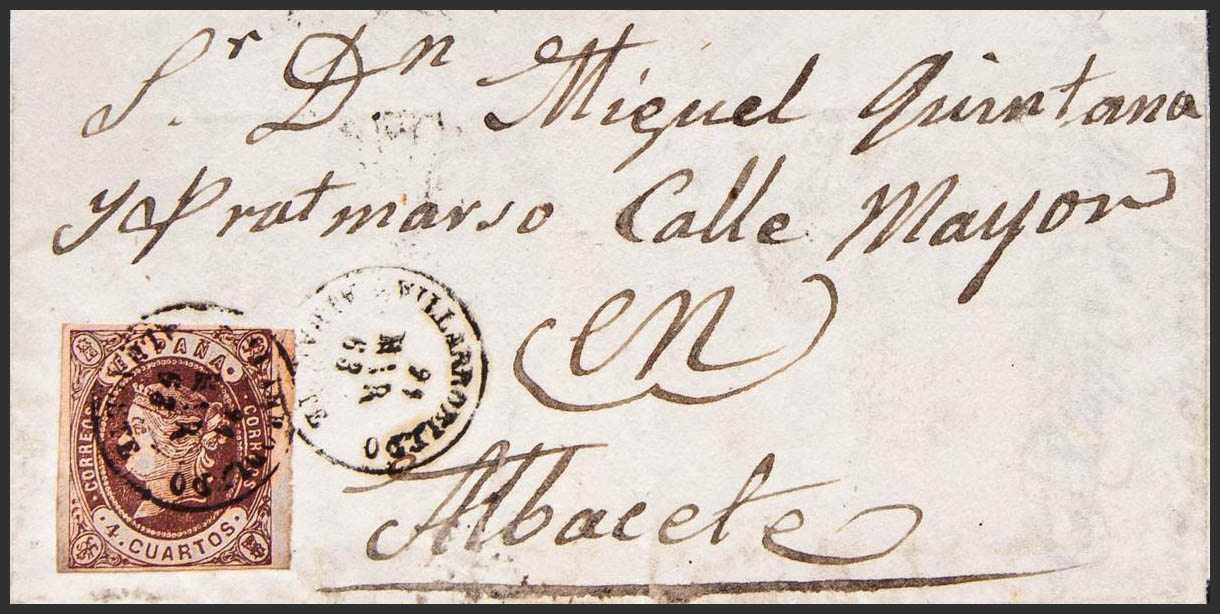 Sr. Dn Miguel Quintana
y Pratmarso Calle Mayor
en
Albacete
VILLARROBLEDO
MAR
63
ESPAÑA
CORREOS
CORREOS
4. CUARTOS.